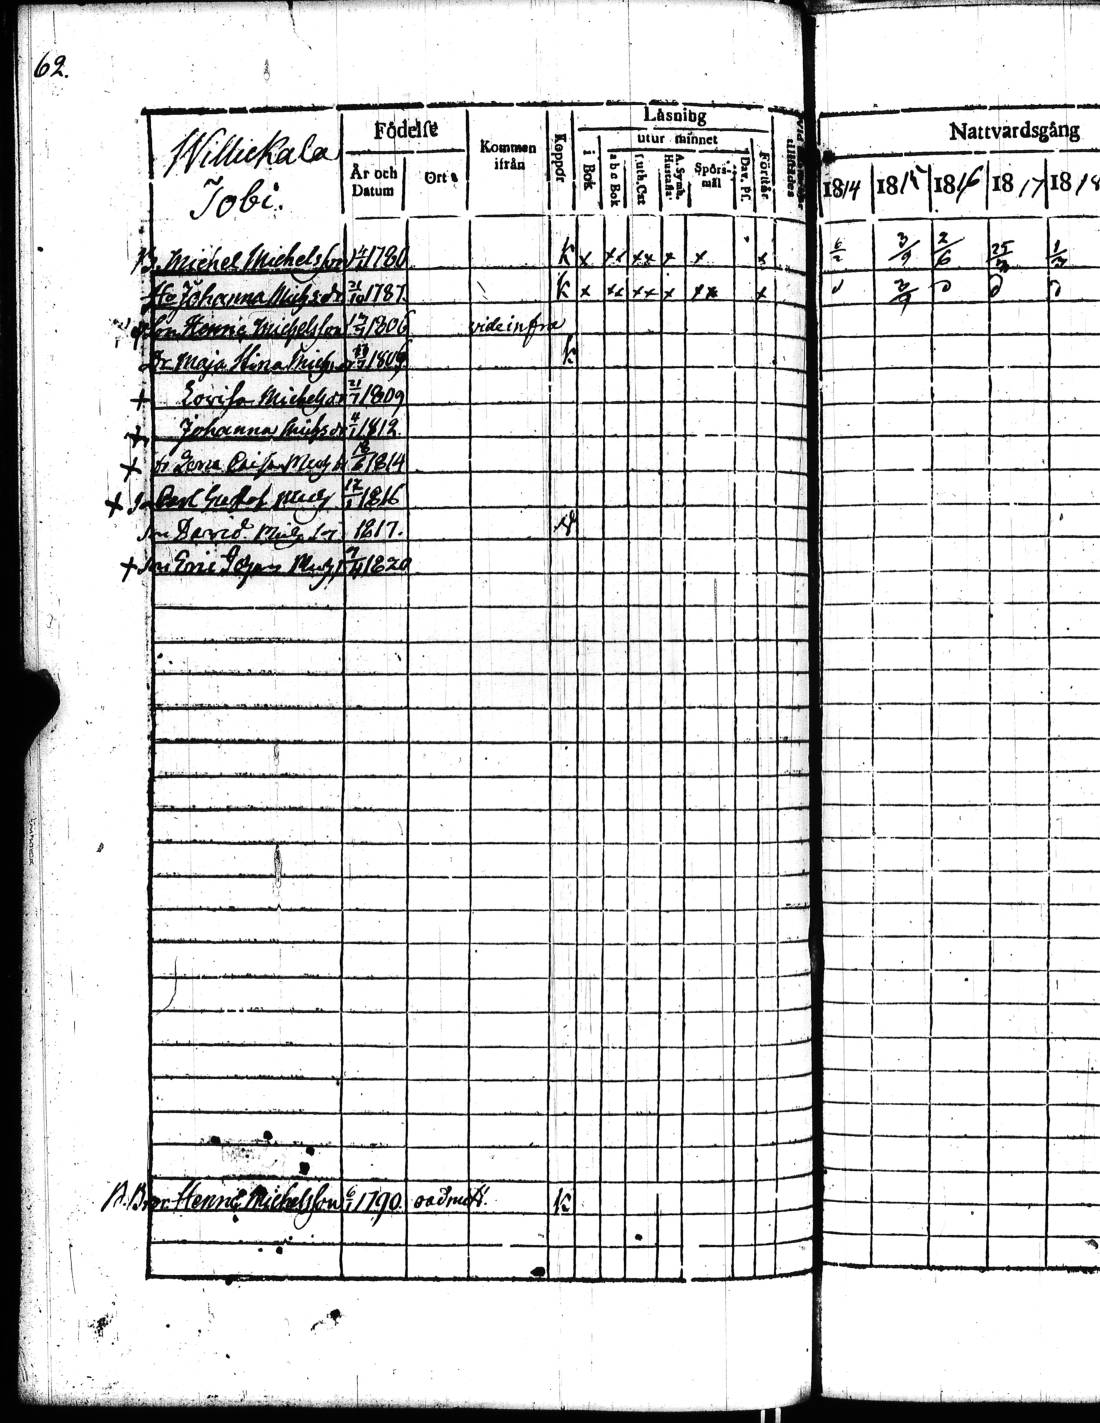 62.
Willickala
Jobi.
Födelse
År och Datum
Ort
Kommen ifrån
Koppor
Läsning
utur minnet
i Bok
a b c Bok
Luth. Cat
A. Symb. Hustafla
Spörsmål
Dav. Ps.
Förstår
Nattvardsgång
1814 1815 1816 1817 1818
B. Michel Michelsson 1780 K x xx xx x x x 6/2 3/9 2/6 25/3 1/3
Hu Johanna Michsdr 21/10 1787 K x xx xx x xx x
Son Henric Michelsson 17 1806 vide infra
Dr Maja Stina Mich 1809 K
+ Lovisa Michelsdr 21/1 1809
+ Johanna Michsdr 4/1 1812
+ dr Lena Caisa Mich dr 1814
+ Carl Gustaf Mich 17/1 1816
Son David Mich 1817.
+ Son Eric Johan Mich 1820
B. Bror Henric Michelsson 6/1 1790. K